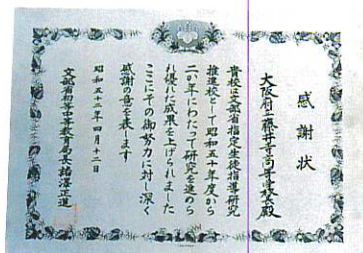 感謝状
大阪府立藤井寺高等学校長殿
貴校は文部省指定生徒指導研究
推進校として昭和五十年度から
二か年にわたって研究を進めら
れ優れた成果を上げられました
ここにその御努力に対し深く
感謝の意を表します
昭和五十二年四月十二日
文部省初等中等教育局長諸澤正道